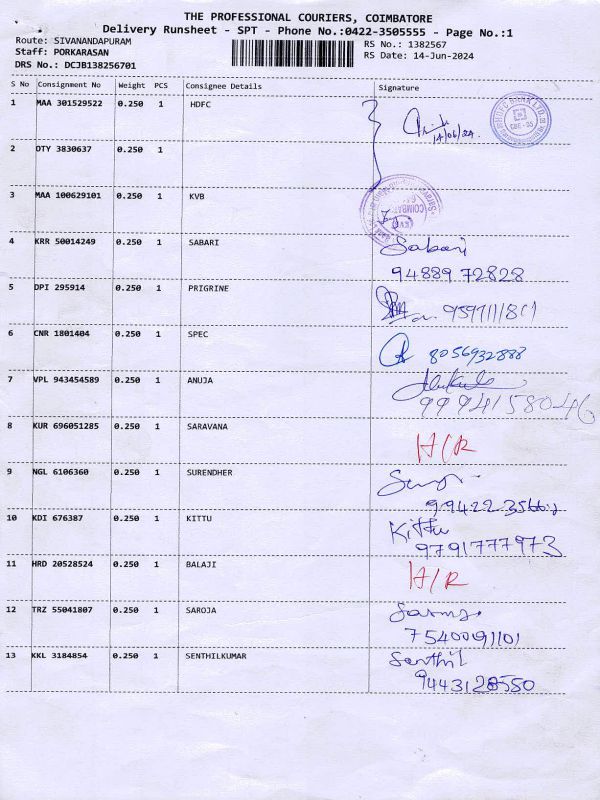 THE PROFESSIONAL COURIERS, COIMBATORE
Delivery Runsheet - SPT - Phone No.:0422-3505555 - Page No.:1
Route: SIVANANDAPURAM
RS No.: 1382567
Staff: PORKARASAN
RS Date: 14-Jun-2024
DRS No.: DCJB138256701
S No Consignment No Weight PCS Consignee Details Signature
1 MAA 301529522 0.250 1 HDFC
14/06/24
HDFC BANK LTD.
CBE-
2 OTY 3830637 0.250 1
3 MAA 100629101 0.250 1 KVB
COIMBAT
4 KRR 50014249 0.250 1 SABARI Sabari
94889 72828
5 DPI 295914 0.250 1 PRIGRINE
6 CNR 1801404 0.250 1 SPEC 8056932888
7 VPL 943454589 0.250 1 ANUJA
9994158046
8 KUR 696051285 0.250 1 SARAVANA H/R
9 NGL 6106360 0.250 1 SURENDHER
10 KDI 676387 0.250 1 KITTU Kittu
9791777973
11 HRD 20528524 0.250 1 BALAJI H/R
12 TRZ 55041807 0.250 1 SAROJA
7540091101
13 KKL 3184854 0.250 1 SENTHILKUMAR Senthil
9443128550